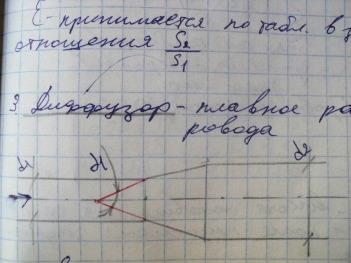 ξ - принимается по табл. в з
отношения S₂/S₁
3. Диффузор - плавное ра
ровода
d1 d1 d2